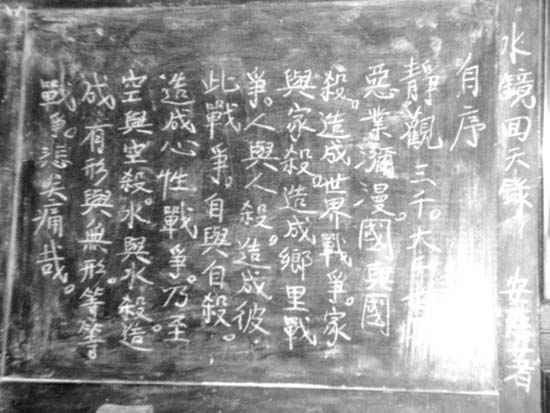 水鏡回天錄 安慈著
自序
靜觀三千。大千
惡業瀰漫。國與國
殺。造成世界戰爭。家
與家殺。造成鄉里戰
爭。人與人殺。造成彼
此戰爭。自與自殺。
造成心性戰爭。乃至
空與空殺。水與水殺造
成 有形與無形。等等
戰爭。悲矣痛哉。